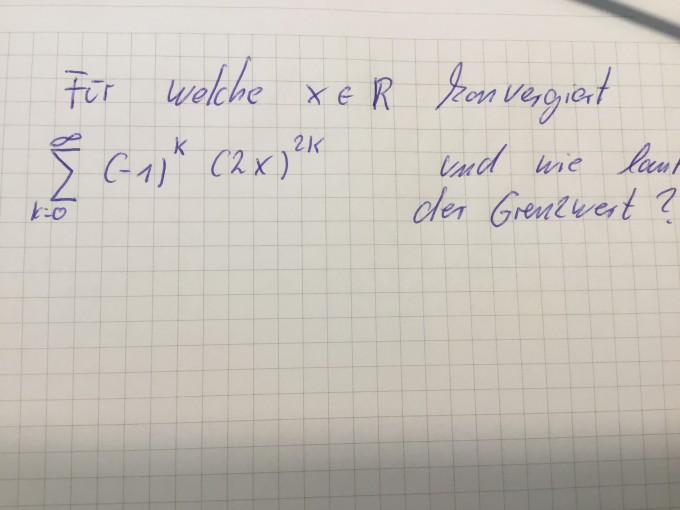 Für welche x ∈ ℝ konvergiert
∞
∑ (-1)^k (2x)^{2k} und wie
k=0
der Grenzwert?